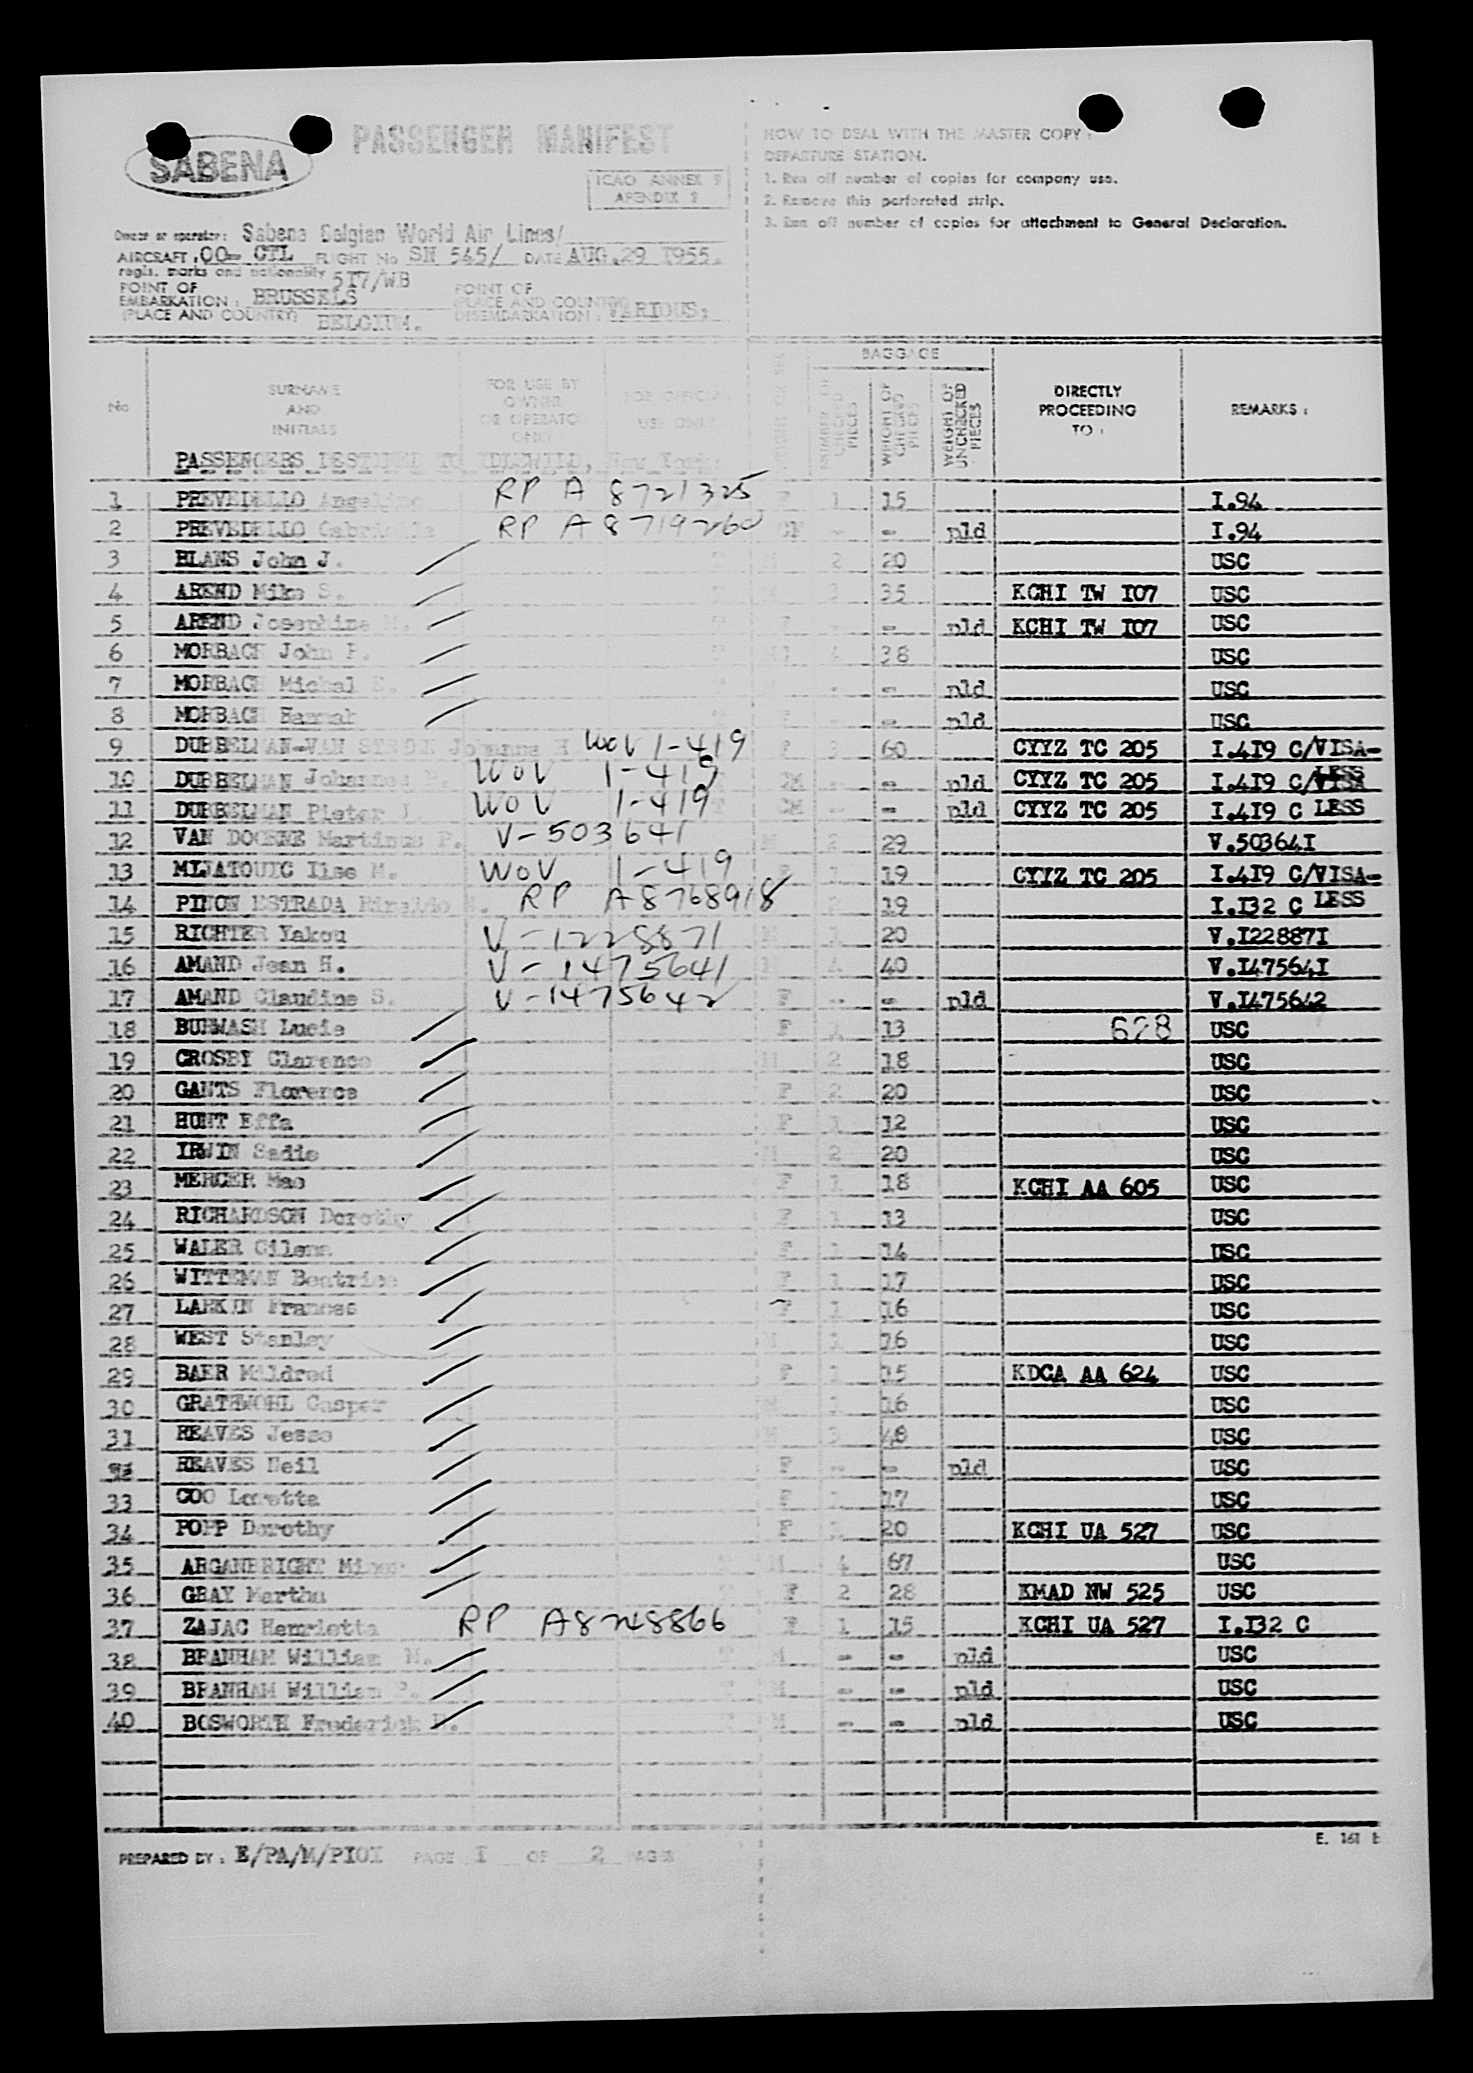 SABENA
PASSENGER MANIFEST
ICAO ANNEX 9
APENDIX 2
HOW TO DEAL WITH THE MASTER COPY
DEPARTURE STATION.
1. Run off number of copies for company use.
2. Remove this perforated strip.
3. Run off number of copies for attachment to General Declaration.
Owner or operator: Sabena Belgian World Air Lines/
AIRCRAFT OO- CTL FLIGHT No SN 545/ DATE AUG.29 1955.
regis. marks and nationality 5I7/WB
POINT OF EMBARKATION: BRUSSELS
(PLACE AND COUNTRY) BELGIUM.
POINT OF (PLACE AND COUNTRY) DISEMBARKATION: VARIOUS:
No
SURNAME AND INITIALS
FOR USE BY OWNER OR OPERATOR ONLY
FOR OFFICIAL USE ONLY
BAGGAGE
NUMBER OF CHECKED PIECES
WEIGHT OF CHECKED PIECES
WEIGHT OF UNCHECKED PIECES
DIRECTLY PROCEEDING TO:
REMARKS:
PASSENGERS DESTINED TO IDLEWILD, New York:
1 PREVEDELLO Angelina RP A 8721325 F 1 15 I.94
2 PREVEDELLO Gabrielle RP A 8719260 CH - - pld I.94
3 BLANS John J. M 2 20 USC
4 AREND Mike S. M 3 35 KCHI TW I07 USC
5 AREND Josephine M. F - - pld KCHI TW I07 USC
6 MORBACH John P. M 4 38 USC
7 MORBACH Michal E. - - pld USC
8 MORBACH Hannah F - - pld USC
9 DUBBELMAN-VAN Johanna H WOV 1-419 F 3 60 CYYZ TC 205 I.4I9 C/VISA=
10 DUBBELMAN Johannes WOV 1-419 CH - - pld CYYZ TC 205 I.4I9 C/VISA LESS
11 DUBBELMAN Pieter J WOV 1-419 CH - - pld CYYZ TC 205 I.4I9 C LESS
12 VAN DOORNE Martinus P. V-503641 M 2 29 V.50364I
13 MIJATOUIC Ilse M. WOV 1-419 F 1 19 CYYZ TC 205 I.4I9 C/VISA=
14 PINON ESTRADA Rinaldo RP A8768918 2 19 I.I32 C LESS
15 RICHTER Yakou V-1228871 M 1 20 V.I22887I
16 AMAND Jean H. V-1475641 M 4 40 V.I47564I
17 AMAND Claudine S. V-1475642 F - - pld V.I475642
18 BURWASH Lucie F 1 13 628 USC
19 CROSBY Clarence M 2 18 USC
20 GANTS Florence F 2 20 USC
21 HUNT Effa F 1 12 USC
22 IRWIN Sadie M 2 20 USC
23 MERCER Mae F 1 18 KCHI AA 605 USC
24 RICHARDSON Dorothy F 1 13 USC
25 WALER Gilena F 1 14 USC
26 WITTEMAN Beatrice F 1 17 USC
27 LARKIN Frances F 1 16 USC
28 WEST Stanley M 1 16 USC
29 BAER Mildred F 1 15 KDCA AA 624 USC
30 GRATHWOHL Casper M 1 16 USC
31 REAVES Jesse M 3 48 USC
32 REAVES Neil F - - pld USC
33 COO Loretta F 1 17 USC
34 POPP Dorothy F 1 20 KCHI UA 527 USC
35 ARGANBRIGHT Minor M 4 67 USC
36 GRAY Martha F 2 28 KMAD NW 525 USC
37 ZAJAC Henrietta RP A8248866 F 1 15 KCHI UA 527 I.I32 C
38 BRANHAM William M. M - - pld USC
39 BRANHAM William P. M - - pld USC
40 BOSWORTH Frederick M - - pld USC
E. 161 E
PREPARED BY: E/PA/M/PIOI PAGE I OF 2 PAGES